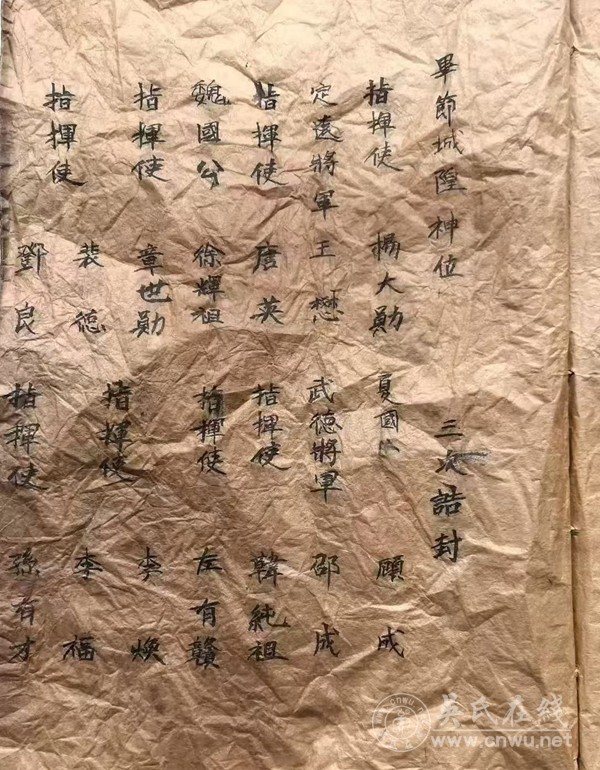 畢節城隍神位 三次誥封
指揮使 楊大勛 夏國公 顧成
定遠將軍 王懋 武德將軍 邵成
指揮使 唐英 指揮使 韓純祖
魏國公 徐輝祖 指揮使 左有贇
指揮使 章世勛 指揮使 李煥
裴德 李福
指揮使 鄧良 指揮使 孫有才
吴氏在线
www.cnwu.net